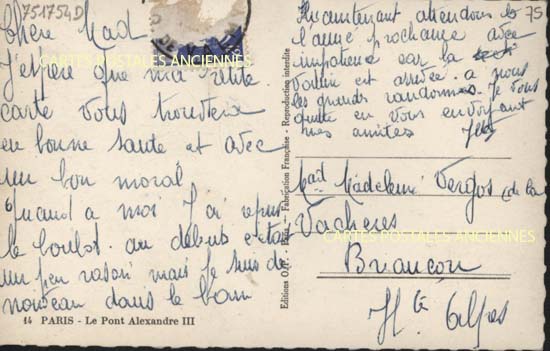 7517540
75
Chère Mad
J'espère que ma petite
carte vous trouvera
en bonne santé et avec
un bon moral
Quand a moi J'ai repris
le boulot. au début c'etait
un peu rasoir mais je suis de
nouveau dans le bain
Maintenant attendons
l'année prochaine avec
impatience car la
voiture est arrivée. a nous
les grands randonnées. Je vous
quitte en vous envoyant
mes amitiés
Mad Madeleine Vergos (de la
Vacheres
Briançon
Hte Alpes
CARTES POSTALES ANCIENNES
CARTES POSTALES ANCIENNES
Fabrication Française - Reproduction interdite
14 PARIS - Le Pont Alexandre III